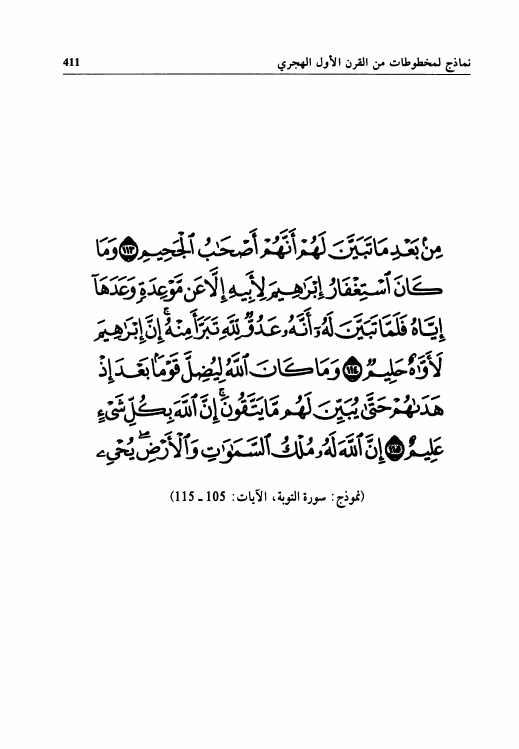 نماذج لمخطوطات من القرن الأول الهجري 411
مِنۢ بَعْدِ مَا تَبَيَّنَ لَهُمْ أَنَّهُمْ أَصْحَٰبُ ٱلْجَحِيمِ ١١٣ وَمَا
كَانَ ٱسْتِغْفَارُ إِبْرَٰهِيمَ لِأَبِيهِ إِلَّا عَن مَّوْعِدَةٍ وَعَدَهَآ
إِيَّاهُ فَلَمَّا تَبَيَّنَ لَهُۥٓ أَنَّهُۥ عَدُوٌّ لِّلَّهِ تَبَرَّأَ مِنْهُ ۚ إِنَّ إِبْرَٰهِيمَ
لَأَوَّٰهٌ حَلِيمٌ ١١٤ وَمَا كَانَ ٱللَّهُ لِيُضِلَّ قَوْمًۢا بَعْدَ إِذْ
هَدَىٰهُمْ حَتَّىٰ يُبَيِّنَ لَهُم مَّا يَتَّقُونَ ۚ إِنَّ ٱللَّهَ بِكُلِّ شَىْءٍ
عَلِيمٌ ١١٥ إِنَّ ٱللَّهَ لَهُۥ مُلْكُ ٱلسَّمَٰوَٰتِ وَٱلْأَرْضِ ۖ يُحْىِۦ
(نموذج: سورة التوبة، الآيات: 105 ـ 115)